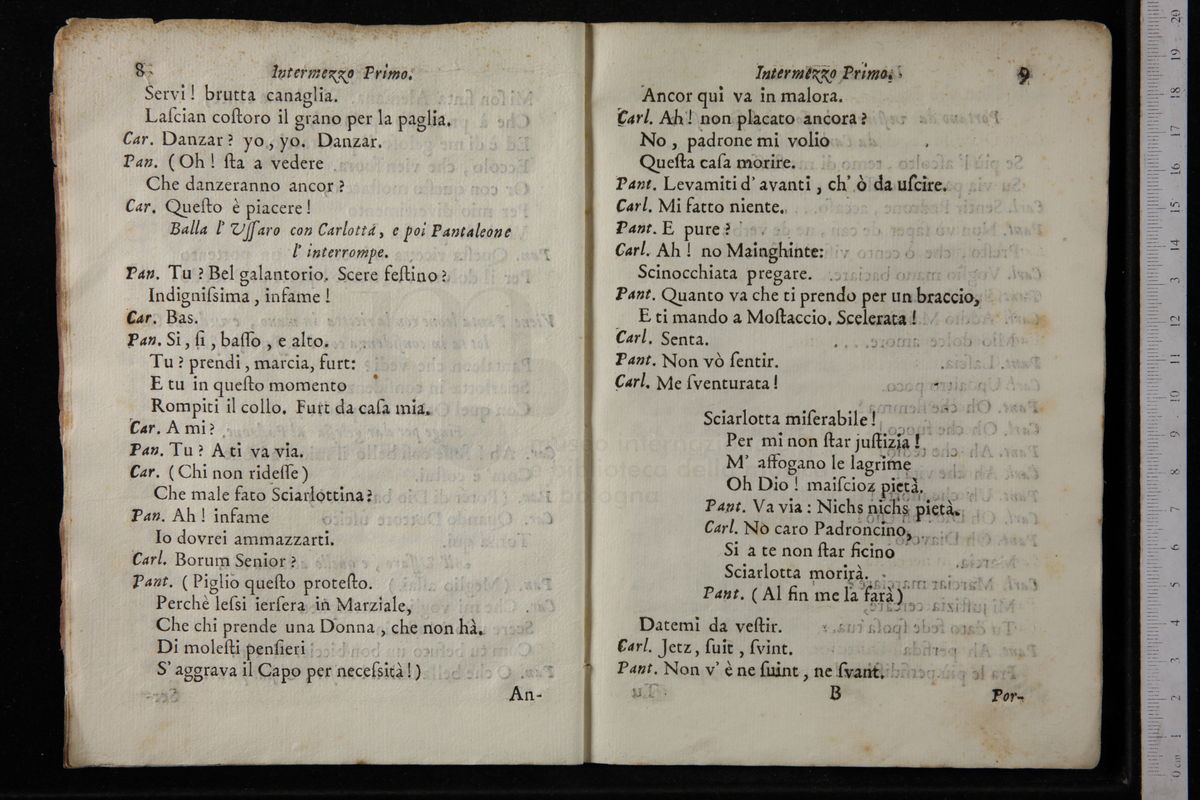 8
Intermezzo Primo.
Servi! brutta canaglia.
Laſcian coſtoro il grano per la paglia.
Car. Danzar? yo, yo. Danzar.
Pan. (Oh! ſta a vedere
Che danzeranno ancor?
Car. Queſto è piacere!
Balla l' Uſſaro con Carlotta, e poi Pantaleone
l' interrompe.
Pan. Tu? Bel galantorio. Scere feſtino?
Indigniſsima, infame!
Car. Bas.
Pan. Si, ſi, baſſo, e alto.
Tu? prendi, marcia, furt:
E tu in queſto momento
Rompiti il collo. Furt da caſa mia.
Car. A mi?
Pan. Tu? A ti va via.
Car. (Chi non rideſſe)
Che male fato Sciarlottina?
Pan. Ah! infame
Io dovrei ammazzarti.
Carl. Borum Senior?
Pant. (Piglio queſto proteſto.
Perchè leſsi ierſera in Marziale,
Che chi prende una Donna, che non hà.
Di moleſti penſieri
S' aggrava il Capo per neceſsità!)
An-
Intermezzo Primo.
9
Ancor qui va in malora.
Carl. Ah! non placato ancora?
No, padrone mi volio
Queſta caſa morire.
Pant. Levamiti d' avanti, ch' ò da uſcire.
Carl. Mi fatto niente.
Pant. E pure?
Carl. Ah! no Mainghinte:
Scinocchiata pregare.
Pant. Quanto va che ti prendo per un braccio,
E ti mando a Moſtaccio. Scelerata!
Carl. Senta.
Pant. Non vò ſentir.
Carl. Me ſventurata!
Sciarlotta miſerabile!
Per mi non ſtar juſtizia!
M' affogano le lagrime
Oh Dio! maiſcioz pietà.
Pant. Va via: Nichs nichs pietà.
Carl. No caro Padroncino,
Si a te non ſtar ficino
Sciarlotta morirà.
Pant. (Al fin me la farà)
Datemi da veſtir.
Carl. Jetz, ſuit, ſvint.
Pant. Non v' è ne ſuint, ne ſvant.
B
Por-